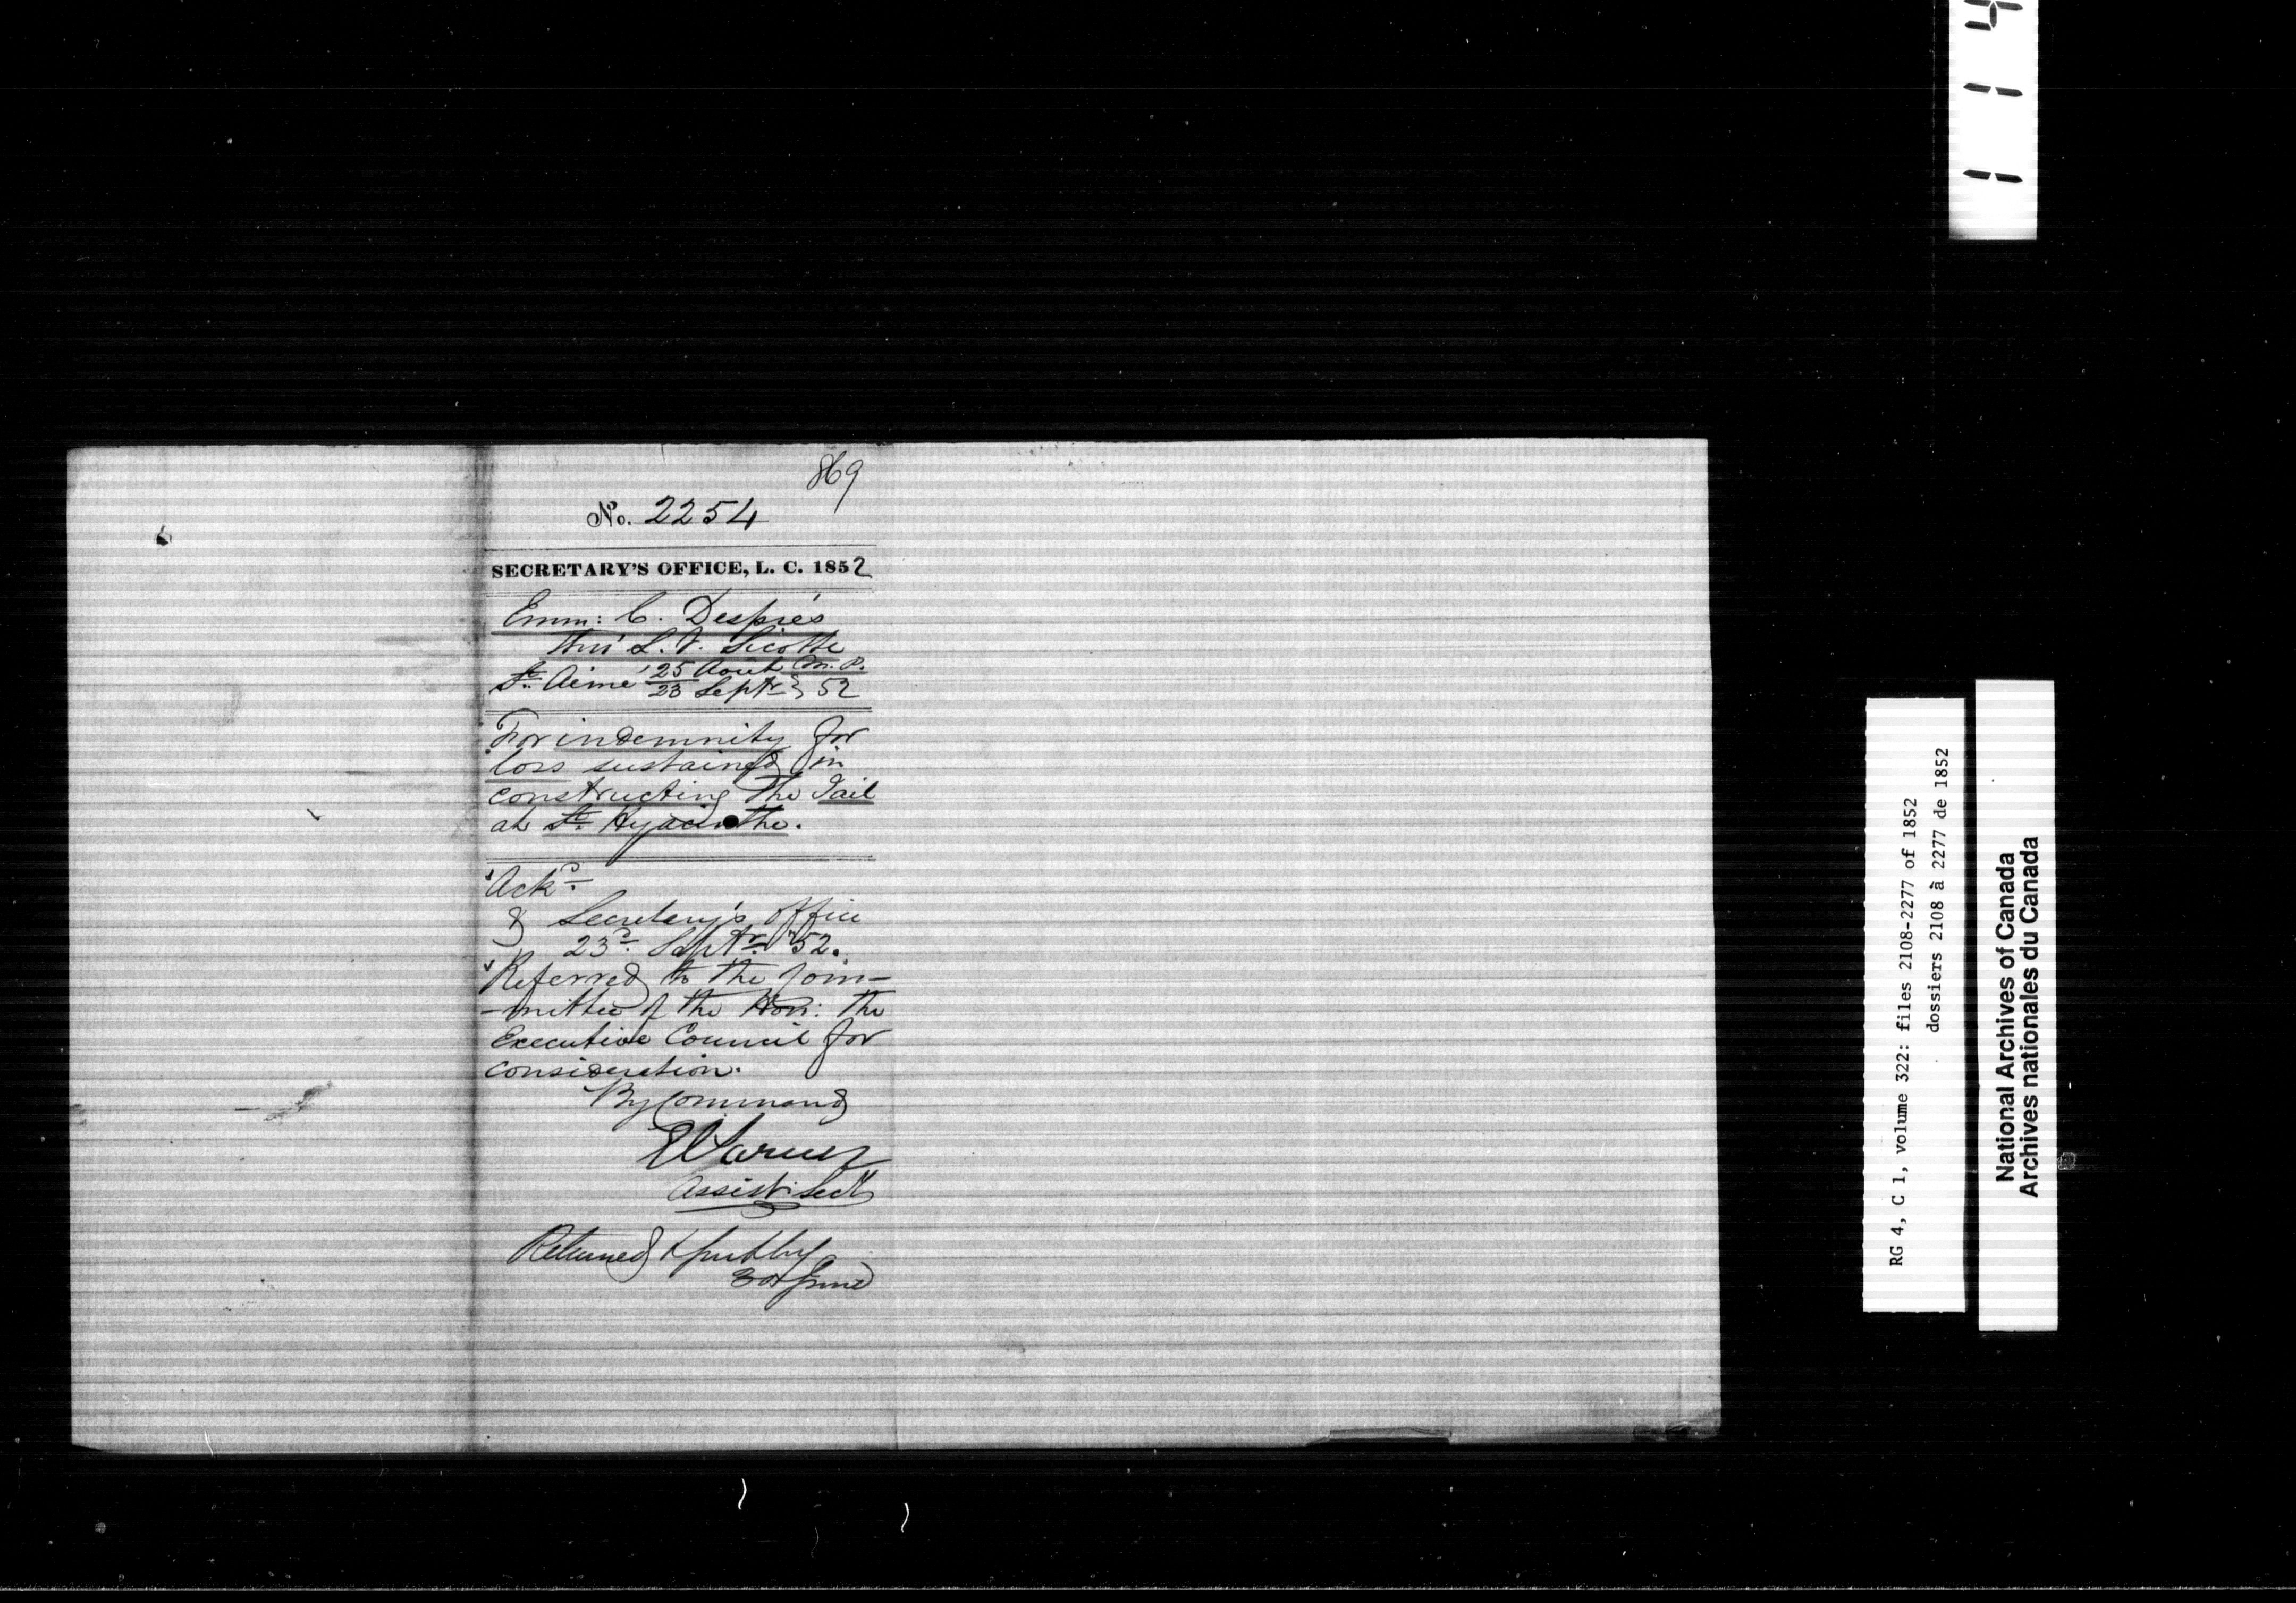 869
No. 2254
SECRETARY'S OFFICE, L. C. 1852
Emm: C. Desprès
thro' L. V. Sicotte
M. P.
St. Aimé 25 Août
23 Septr. } 52
For indemnity for
loss sustained in
constructing the Jail
at St. Hyacinthe.
Ackd.
Secretary's office
23d. Septr. 52.
Referred to the Com-
-mittee of the Hon: the
Executive Council for
consideration.
By Command
Assist: Secy
Returned
30 June
114
RG 4, C 1, volume 322: files 2108-2277 of 1852
dossiers 2108 à 2277 de 1852
National Archives of Canada
Archives nationales du Canada